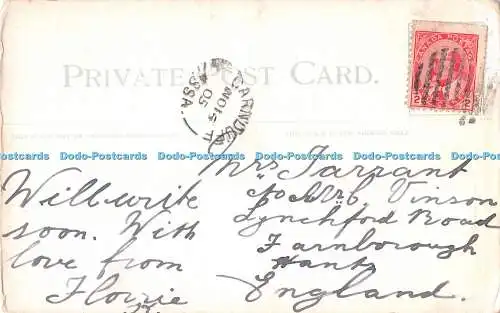 CANADA POSTAGE
2
2
PRIVATE POST CARD.
CARNDUFF
NO 14
05
ASSA.
Dodo-Postcards Dodo-Postcards Dodo-Postcards Dodo-Postcards Dodo-Postcards
Mrs Tarrant
Vinson
Lynchford Road
Farnborough
Hants
England.
Will write
soon. With
love from
Florrie